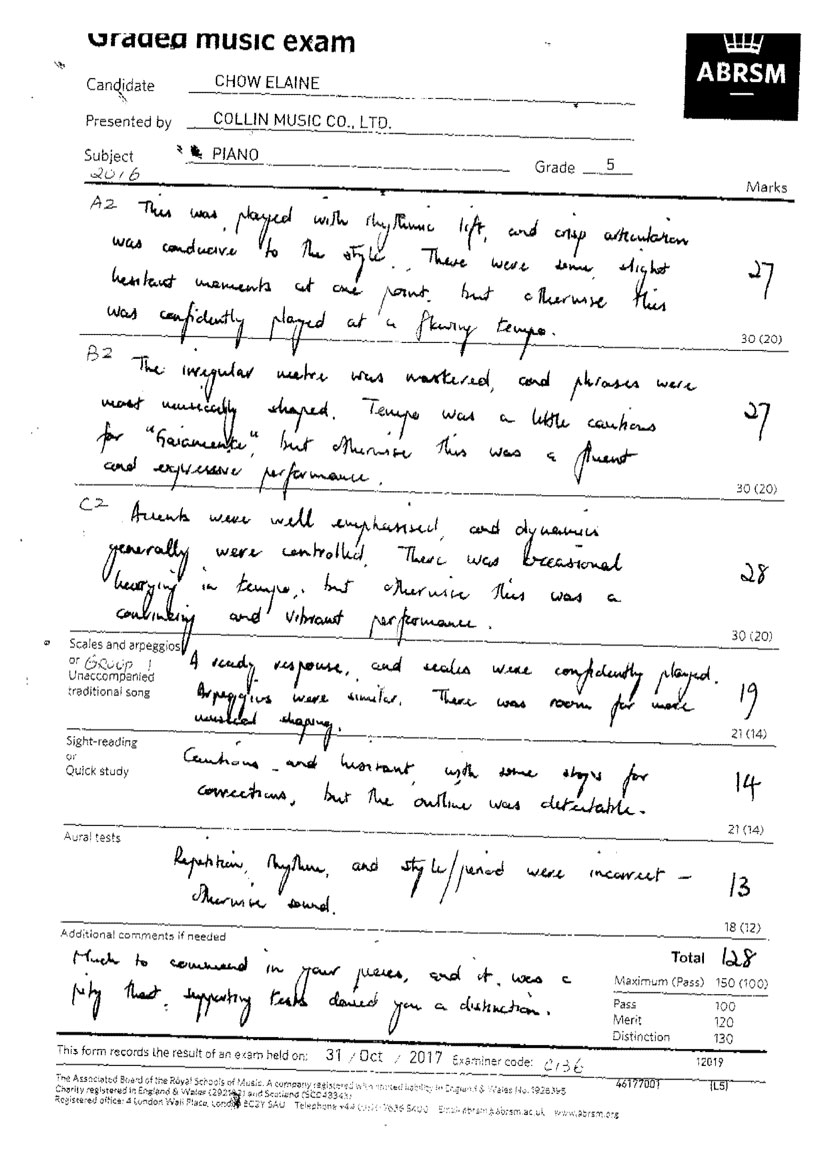 Graded music exam
ABRSM
Candidate CHOW ELAINE
Presented by COLLIN MUSIC CO., LTD.
Subject PIANO Grade 5
2016
Marks
A2 This was played with rhythmic lift, and crisp articulation
was conducive to the style. There were some slight
hesitant moments at one point, but otherwise this
was confidently played at a flowing tempo.
27
30 (20)
B2 The irregular metre was mastered, and phrases were
most musically shaped. Tempo was a little cautious
for "Gaiamente", but otherwise this was a fluent
and expressive performance.
27
30 (20)
C2 Accents were well emphasised, and dynamics
generally were controlled. There was occasional
hurrying in tempo, but otherwise this was a
convincing and vibrant performance.
28
30 (20)
Scales and arpeggios
or Group 1
Unaccompanied
traditional song
A ready response, and scales were confidently played.
Arpeggios were similar. There was room for more
musical shaping.
19
21 (14)
Sight-reading
or
Quick study
Cautious and hesitant, with some stops for
corrections, but the outline was detectable.
14
21 (14)
Aural tests
Repetition, rhythm, and style/period were incorrect –
otherwise sound.
13
18 (12)
Additional comments if needed
Much to commend in your pieces, and it was a
pity that supporting tests denied you a distinction.
Total 128
Maximum (Pass) 150 (100)
Pass 100
Merit 120
Distinction 130
This form records the result of an exam held on: 31 / Oct / 2017 Examiner code: C136
12019
46177001 (L5)
The Associated Board of the Royal Schools of Music. A company registered with limited liability in England & Wales No. 1926395
Charity registered in England & Wales and Scotland
Registered office: 4 London Wall Place, London EC2Y 5AU Telephone +44 Email abrsm@abrsm.ac.uk www.abrsm.org